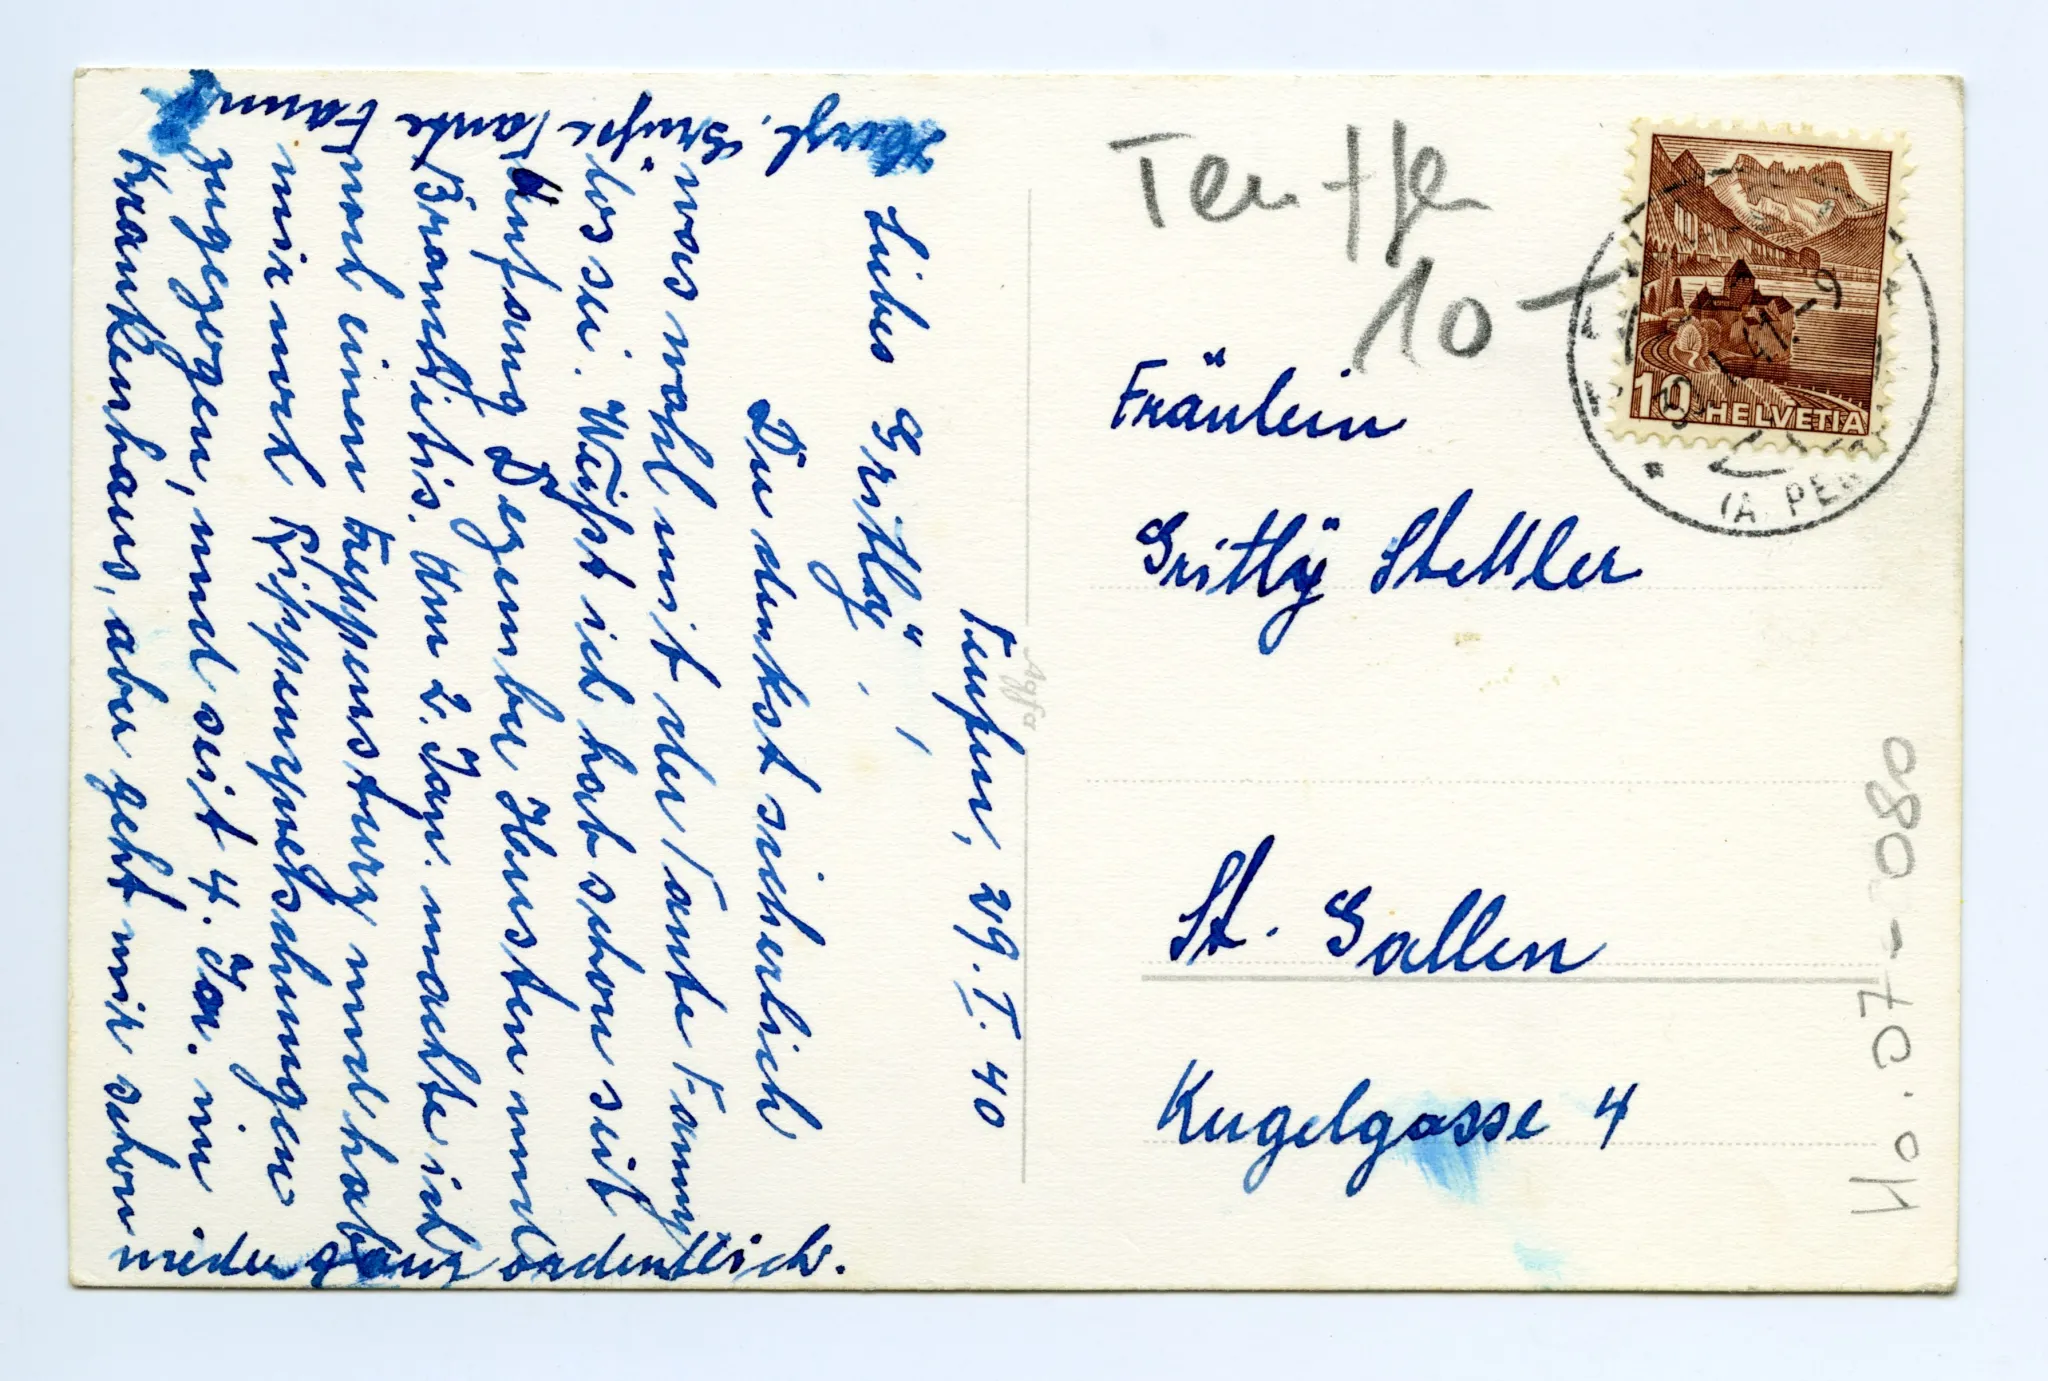 Teufen, 29. I. 40
Liebes Gritlÿ,
Du denkst sicherlich
was wohl mit der Tante Fanny
los sei. Weisst ich hab schon seit
Anfang Dezember Husten und
Bronchitis. Am 2. Jan. machte ich
noch einen Treppensturz und hab
mir noch Rippenquetschungen
zugezogen, und seit 4. Jan. im
Krankenhaus, aber geht mir schon
wieder ganz ordentlich.
Herzl. Grüsse Tante Fanny
Agfa
Teuffen
10-
Fräulein
Gritlÿ Stettler
St. Gallen
Kugelgasse 4
10 HELVETIA
(A. PE
080-70.01